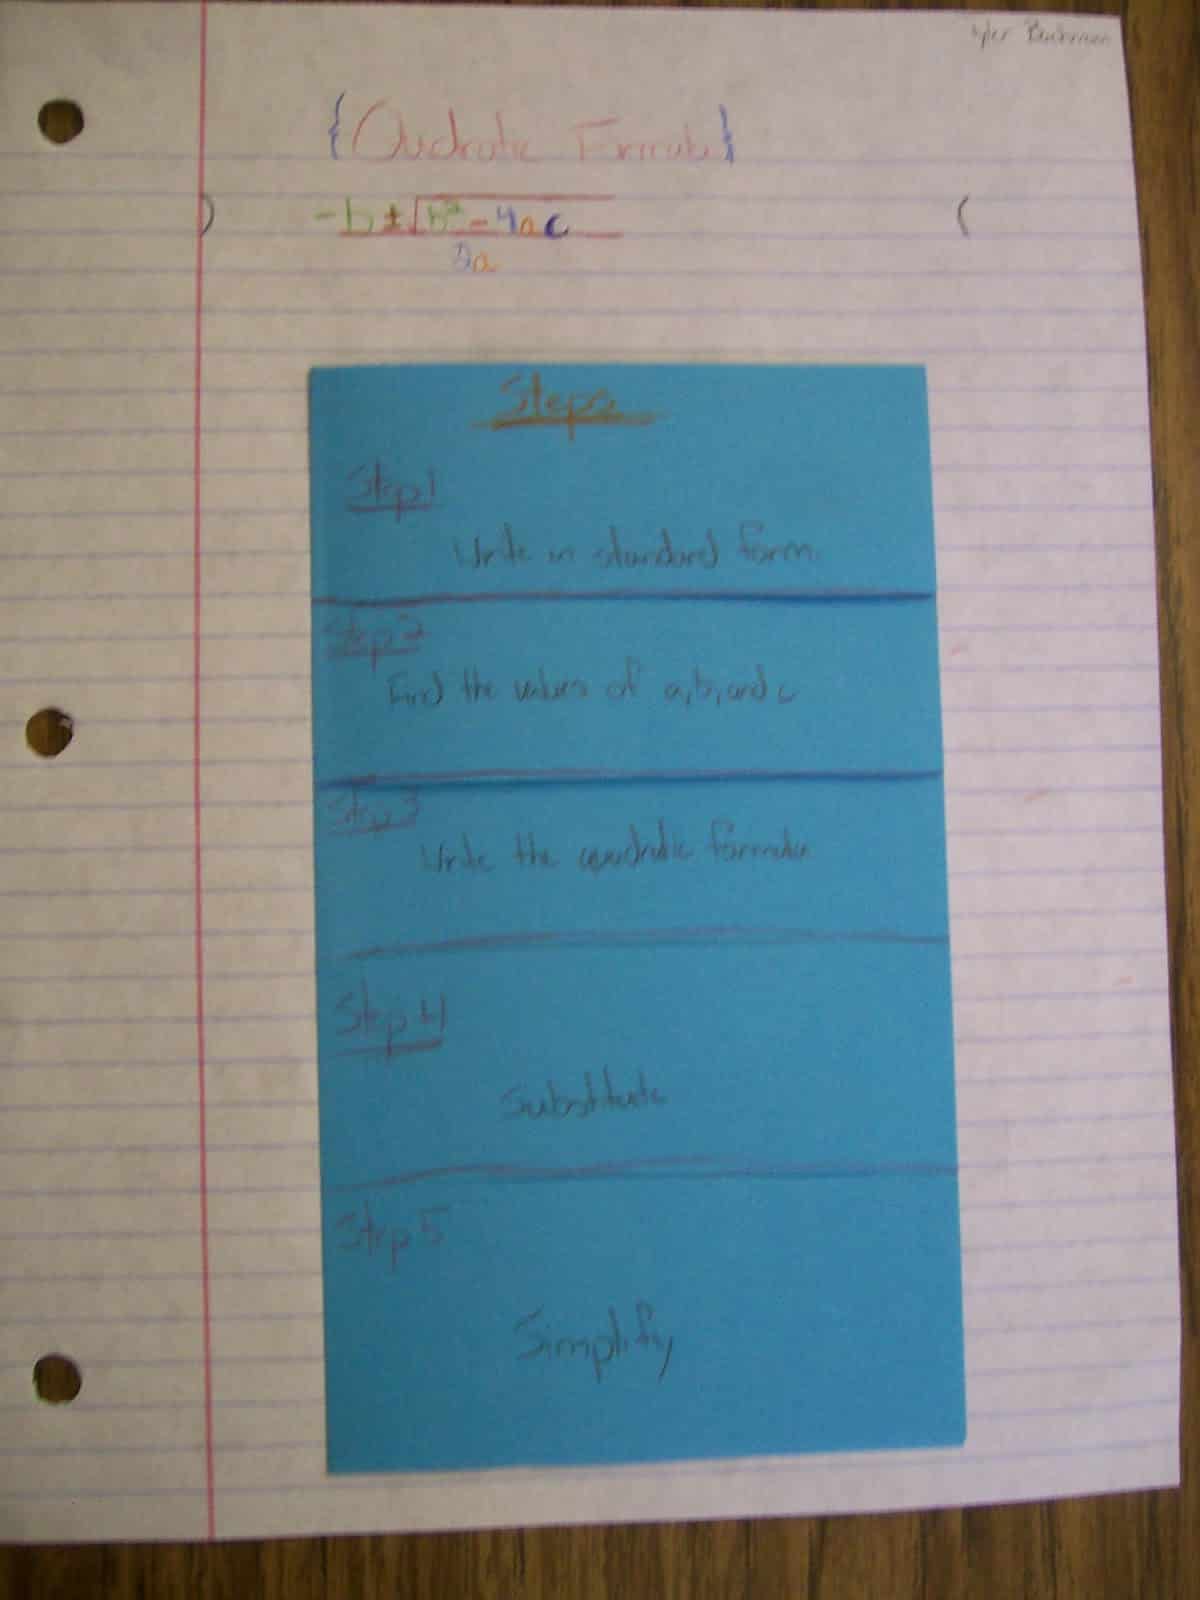 Tyler
{Quadratic Formula}
) (
-b ± √b² - 4ac
2a
Steps
Step 1
Write in standard form
Step 2
Find the values of a, b, and c
Step 3
Write the quadratic formula
Step 4
Substitute
Step 5
Simplify